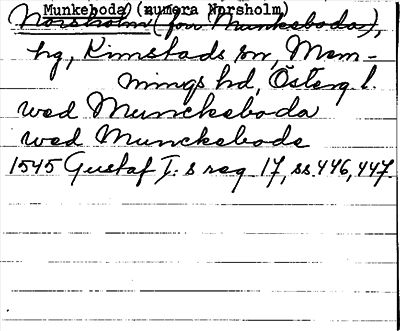 Munkeboda (numera Norsholm)
Norsholm (förr Munkeboda),
hg, Kimstads sn, Mem-
mings hd, Österg. l.
wed Munckeboda
wed Munckebode
1545 Gustaf I:s reg 17, ss. 446, 447.